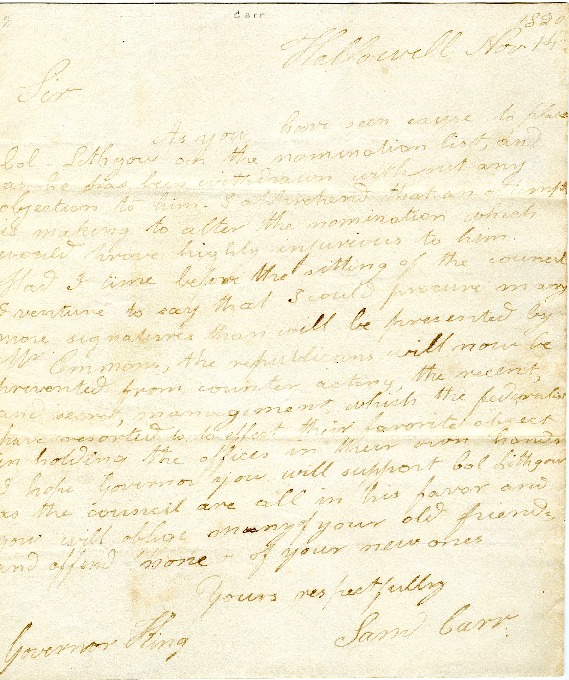 2
Carr
1820
Hallowell Nov. 14
Sir
As you have seen cause to place
Col. Lithgow on the nomination list, and
as he has been withdrawn without any
objection to him. I apprehend that an attempt
is making to alter the nomination which
would prove highly injurious to him.
Had I time before the sitting of the council
I venture to say that I could procure many
more signatures than will be presented by
Mr Emmons, the republicans will now be
prevented from counter acting, the recent,
and secret, management which the federalists
have resorted to to effect their favorite object
in holding the offices in their own hands
I hope Governor you will support Col Lithgow
as the council are all in his favor and
you will oblige many of your old friends,
and offend none of your new ones
Yours respectfully
Saml Carr.
Governor King